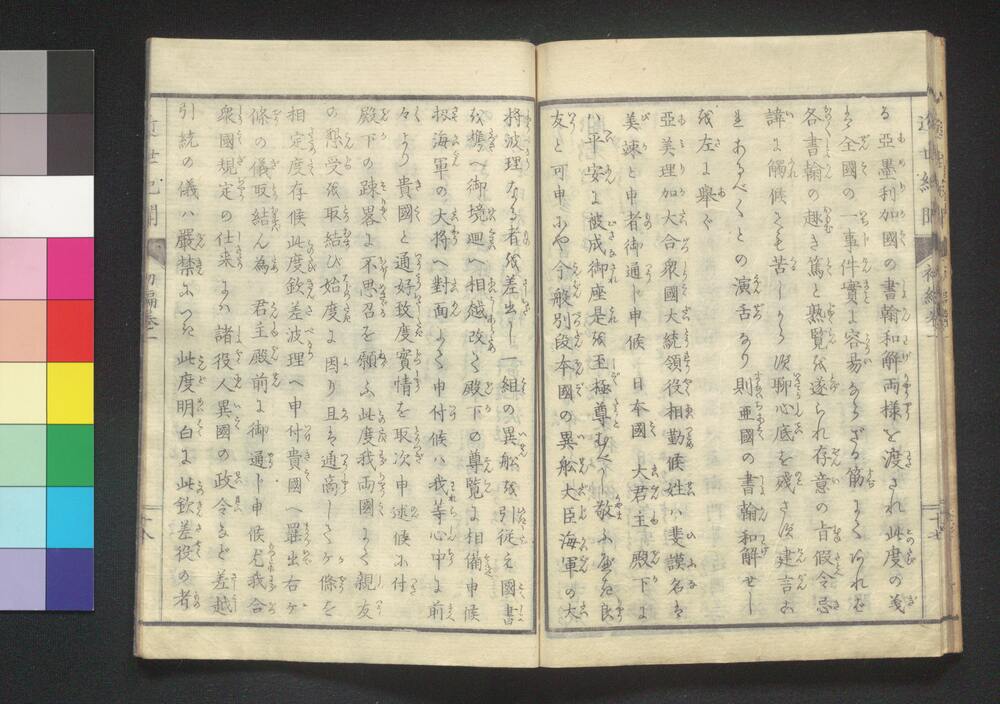 る亞墨利加國の書翰和解両様を渡され此度の義
は全國の一事件實に容易ならざる筋にてこれあれば
各書翰の趣き篤と熟覧を遂られ存意の旨假令忌
諱に觸候とも苦しからず聊心底を残さず建言お
よあるべくとの演舌なり則亜國の書翰和解せし
を左に擧ぐ
亞美理加大合衆國大統領役相勤候姓ハ斐謨名は
美辣と申者御通し申候 日本國 大君主 殿下に
ハ平安に被成御座是を至極尊むべく敬ふ所の良
友と可申にや今般別段本國の異舩大臣海軍の大
将波理なる者を差出し一組の異舩を引従え國書
を携へ御境廻へ相越改て殿下の尊覧に相備申候
扨海軍の大将へ對面にて申付候ハ我等心中に前
々より貴國と通好致度實情を取次申述候に付
殿下の疎畧に不思召を願ふ此度我両國にて親友
の懇受を取結び始度に因り且は通商してケ條を
相定度存候此度欽差波理へ申付貴國へ罷出右ケ
條の儀取結ん為 君主殿前に御通し申候尤我合
衆國規定の仕来にハ諸役人異國の政令など差越
引続の儀ハ嚴禁につき此度明白に此欽差役の者
近世紀聞 初編巻一